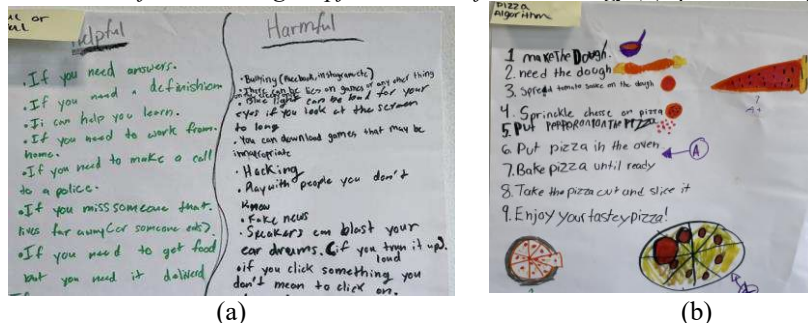 Helpful
•If you need answers.
•If you need a definishion
•It can help you learn.
•If you need to work from
home.
•If you need to make a call
to a police.
•If you miss someone that
lives far away(or someone ).
•If you need to get food
but you need it deliverd
Harmful
•Bullying (facebook, instagram etc)
•There can be lies on games or any other thing
•Blue light can be bad for your
eyes if you look at the screen
to long
•You can download games that may be
inapropriate
•Hacking
•Play with people you don't
know
•Fake news
•Speakers can blast your
ear drums. (if you turn it up).
loud
•if you click something you
don't mean to click on.
(a)
Pizza
Algorithm
1 make The Dough.
2. need the dough
3. Spread tomato sauce on the dough
4. Sprinckle cheese on pizza
5. Put pepporoni on the Pizza
6. Put pizza in the oven
A
7. Bake pizza until ready
8. Take the pizza out and slice it
9. Enjoy your tastey pizza!
(b)